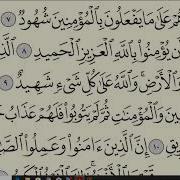 عَلَىٰ مَا يَفْعَلُونَ بِٱلْمُؤْمِنِينَ شُهُودٌ ٧
أَن يُؤْمِنُوا۟ بِٱللَّهِ ٱلْعَزِيزِ ٱلْحَمِيدِ ٨ ٱلَّذِ
وَٱلْأَرْضِ ۚ وَٱللَّهُ عَلَىٰ كُلِّ شَىْءٍ شَهِيدٌ ٩
وَٱلْمُؤْمِنَٰتِ ثُمَّ لَمْ يَتُوبُوا۟ فَلَهُمْ عَذَابُ
١٠ إِنَّ ٱلَّذِينَ ءَامَنُوا۟ وَعَمِلُوا۟ ٱلصَّ